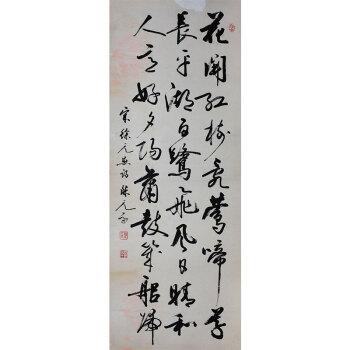 花開紅樹亂鶯啼草
長平湖白鷺飛风日晴和
人意好夕陽簫鼓幾船歸
宋徐元杰詩